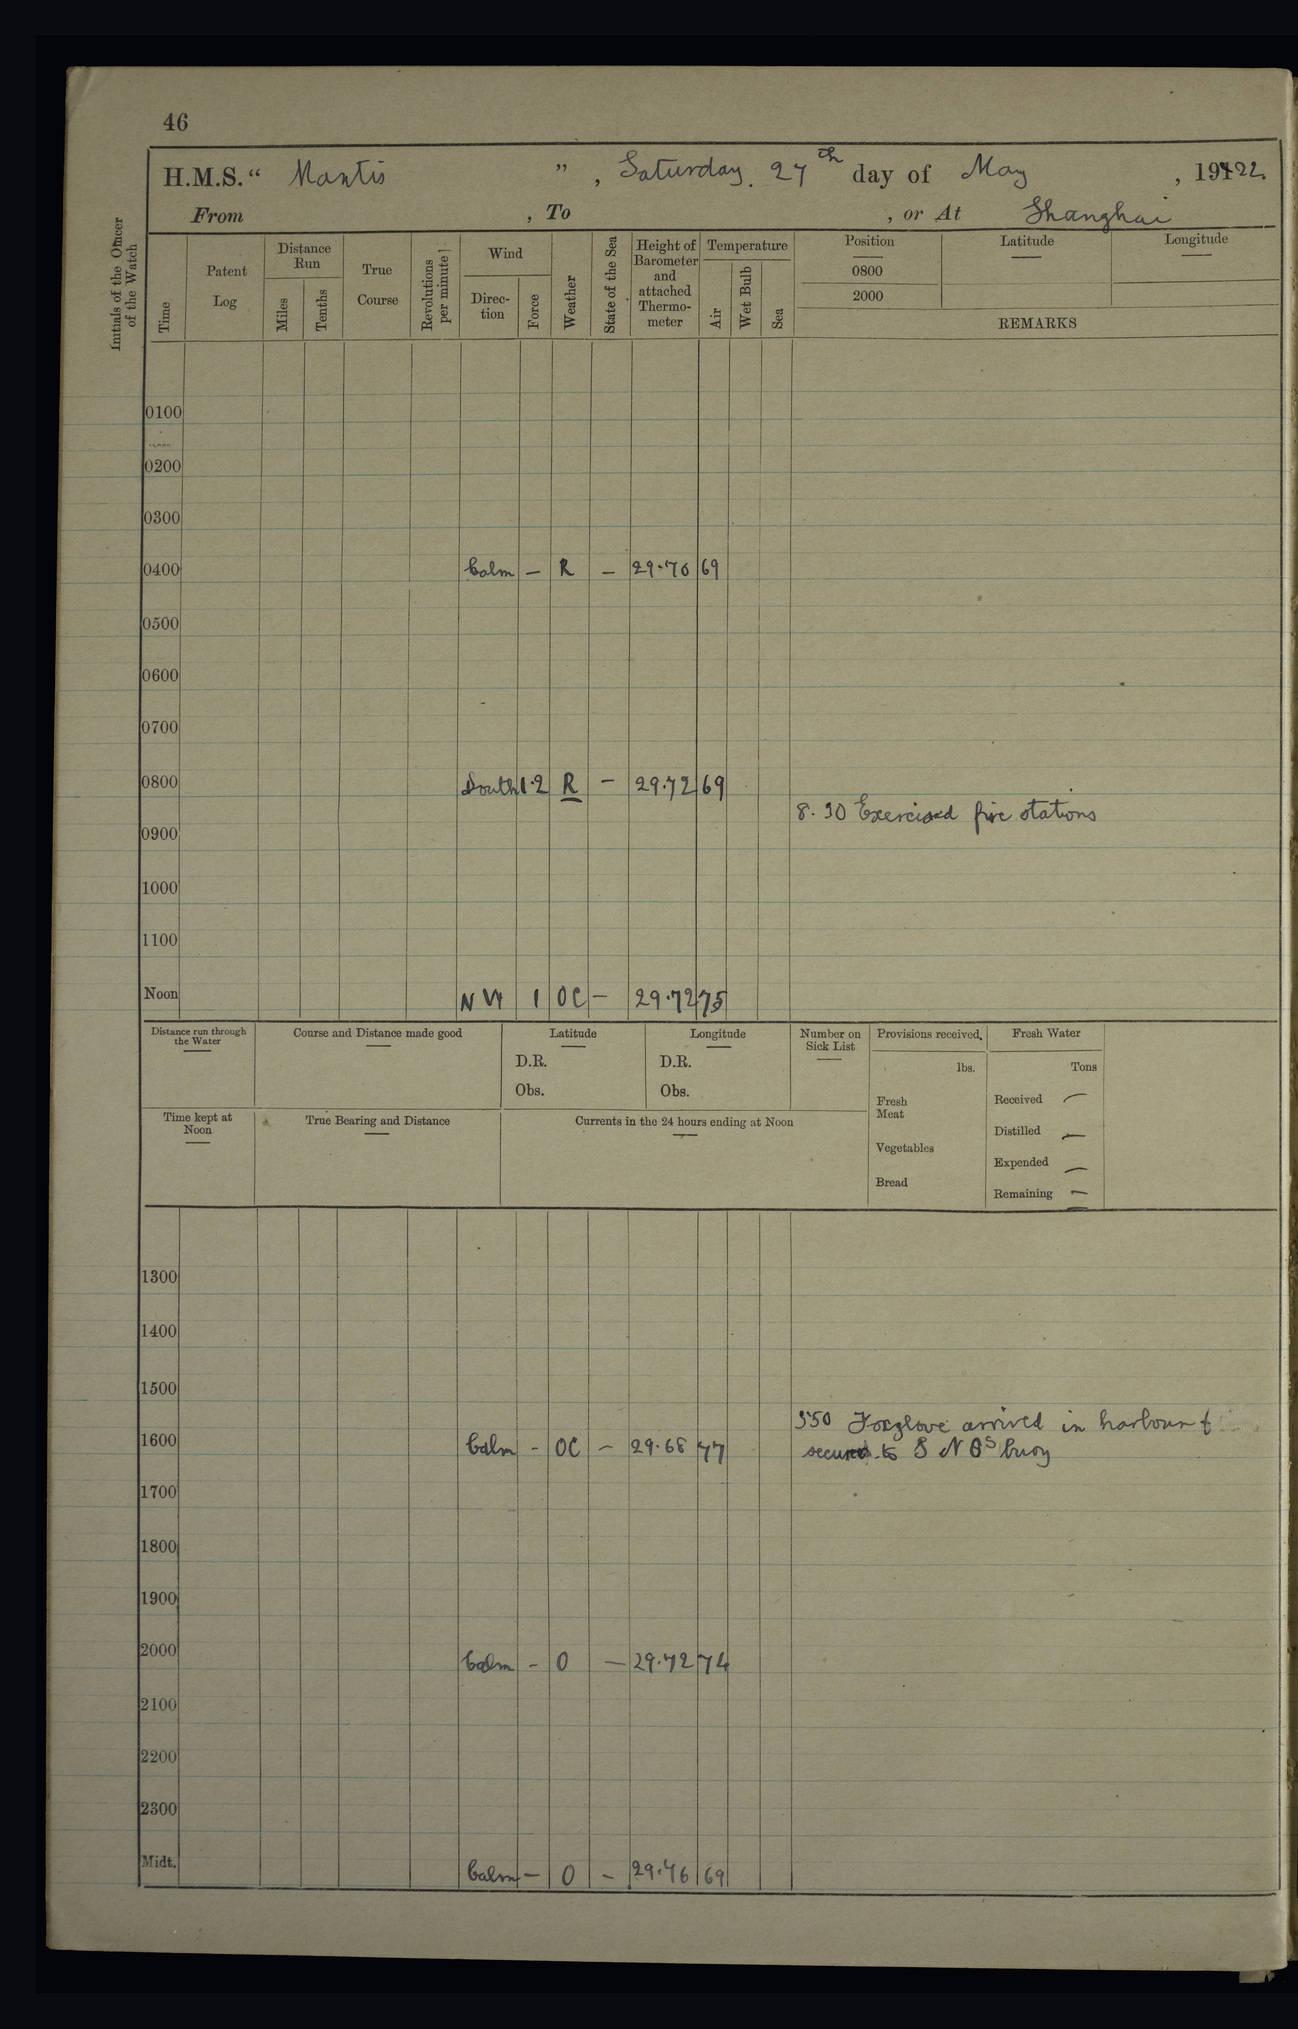 46
H.M.S. “ Mantis ” , Saturday. 27th day of May , 1922.
From , To , or At Shanghai
Initials of the Officer of the Watch
Time
Patent Log
Distance Run
Miles
Tenths
True Course
Revolutions per minute
Wind
Direc-tion
Force
Weather
State of the Sea
Height of Barometer and attached Thermo-meter
Temperature
Air
Wet Bulb
Sea
Position Latitude Longitude
0800
2000
REMARKS
0100
0200
0300
0400 Calm – R – 29.70 69
0500
0600
0700
0800 South 1.2 R – 29.72 69
8.30 Exercised fire stations
0900
1000
1100
Noon NW 1 OC – 29.72 75
Distance run through the Water
Course and Distance made good
Latitude
D.R.
Obs.
Longitude
D.R.
Obs.
Number on Sick List
Provisions received.
lbs.
Fresh Meat
Vegetables
Bread
Fresh Water
Tons
Received –
Distilled –
Expended –
Remaining –
Time kept at Noon
True Bearing and Distance
Currents in the 24 hours ending at Noon
1300
1400
1500
3.50 Foxglove arrived in harbour &
1600 Calm – OC – 29.68 77
secured to S N Os buoy
1700
1800
1900
2000 Calm – O – 29.72 74
2100
2200
2300
Midt. Calm – O – 29.76 69